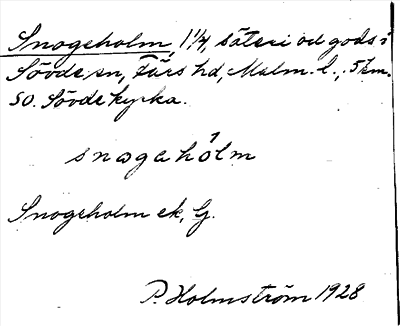 Snogeholm, 1 1/4, säteri od gods i
Sövde sn, Färs hd, Malm. l., 5 km.
SO. Sövde kyrka.
snogahólm
Snogeholm ek, G.
P. Holmström 1928